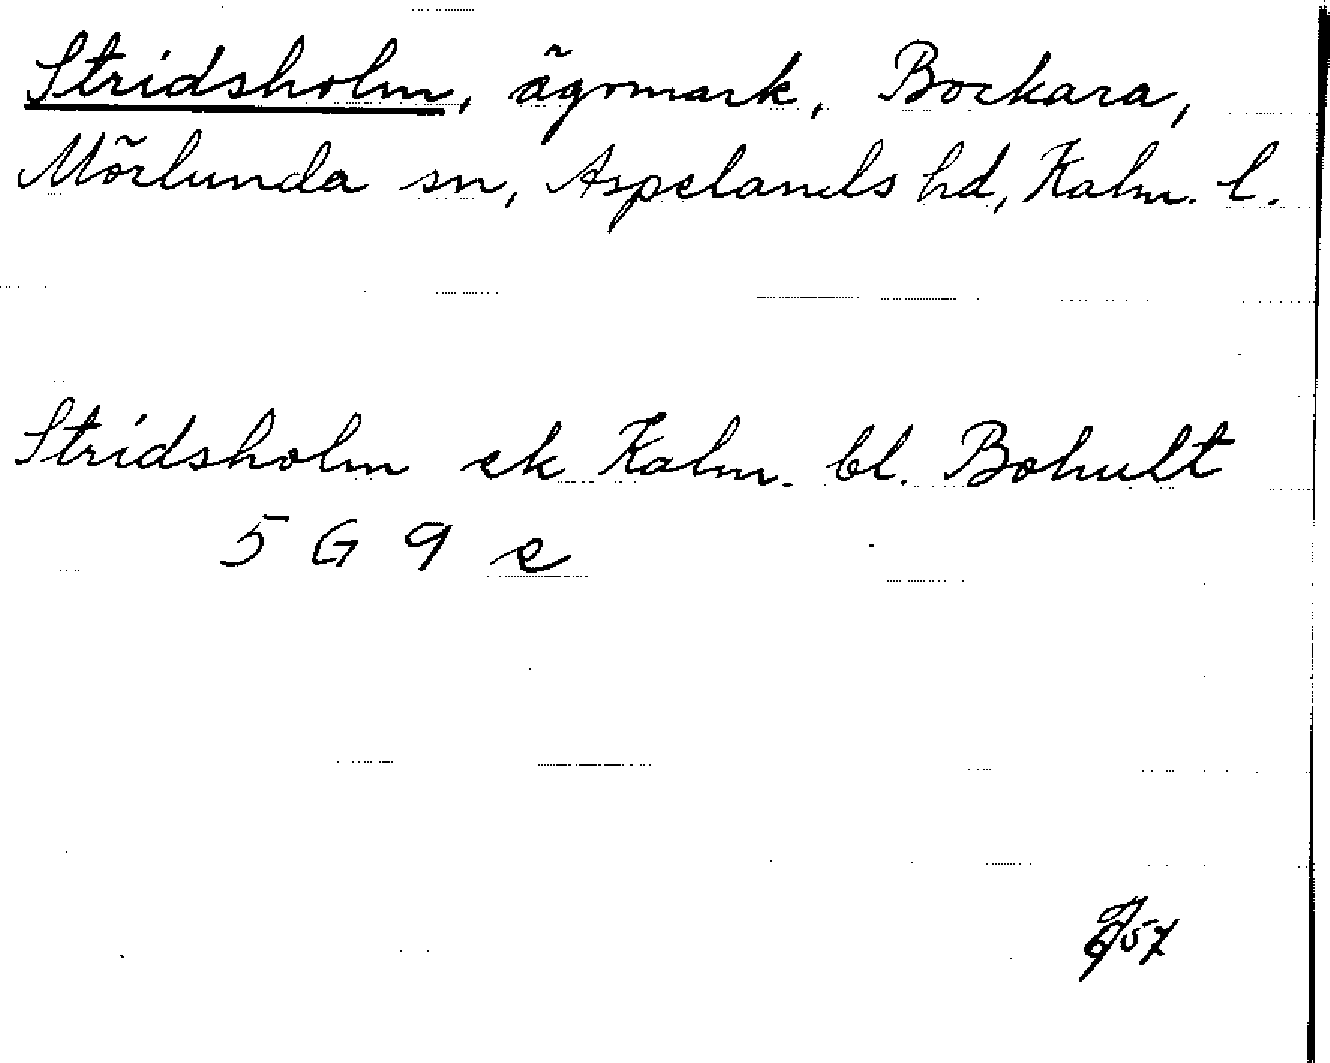 Stridsholm, ägomark, Bockara,
Mörlunda sn, Aspelands hd, Kalm. l.
Stridsholm ek Kalm. bl. Bohult
5 G 9 e